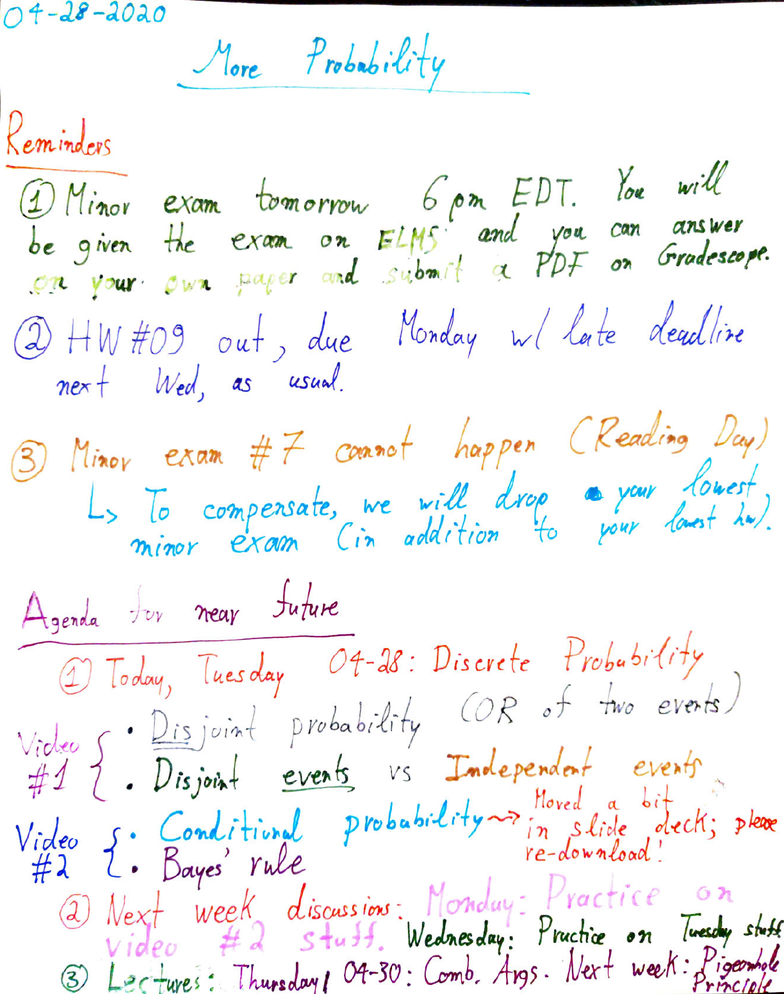 04-28-2020
More Probability
Reminders
① Minor exam tomorrow 6 pm EDT. You will
be given the exam on ELMS and you can answer
on your own paper and submit a PDF on Gradescope.
② HW #09 out, due Monday w/ late deadline
next Wed, as usual.
③ Minor exam #7 cannot happen (Reading Day)
↳ To compensate, we will drop your lowest
minor exam (in addition to your lowest hw).
Agenda for near future
① Today, Tuesday 04-28: Discrete Probability
Video #1 { • Disjoint probability (OR of two events)
• Disjoint events vs Independent events
Video #2 { • Conditional probability ⇝ Moved a bit in slide deck; please re-download!
• Bayes' rule
② Next week discussions: Monday: Practice on
video #2 stuff. Wednesday: Practice on Tuesday stuff
③ Lectures: Thursday, 04-30: Comb. Args. Next week: Pigeonhole Principle